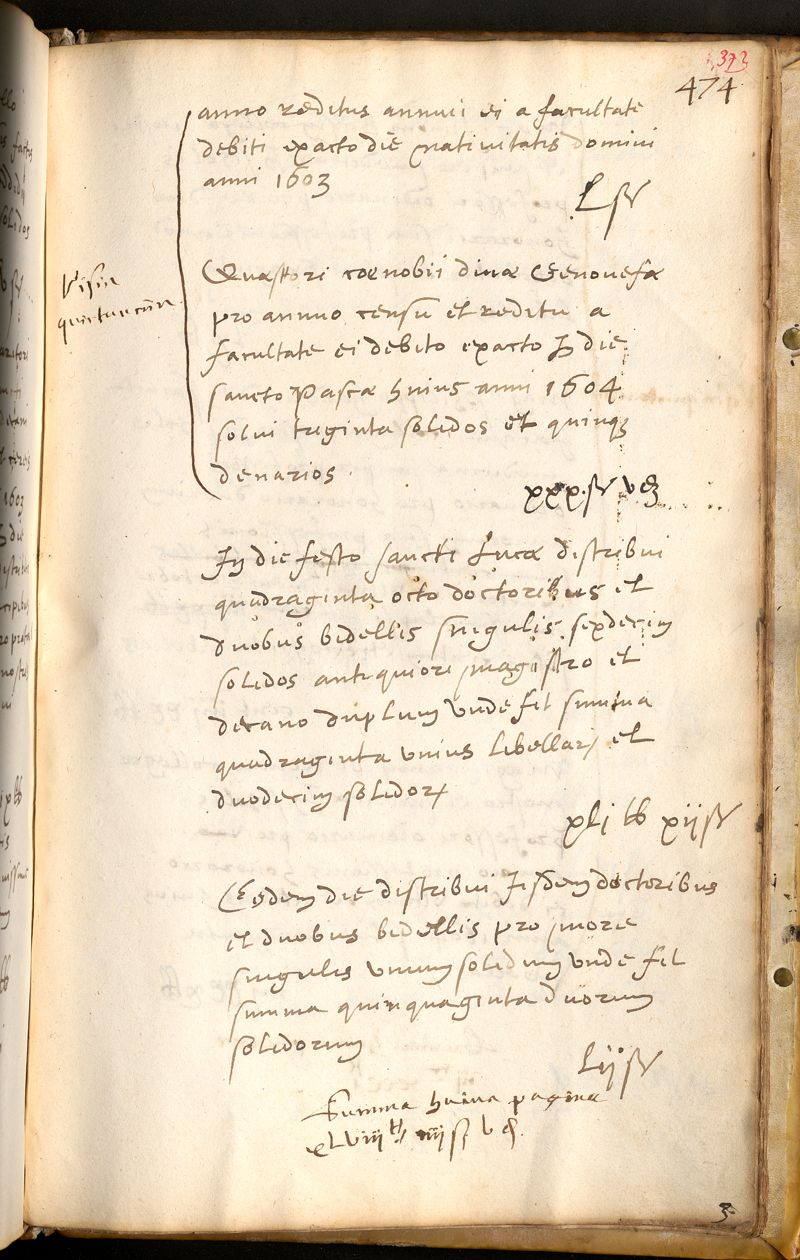 373
474
anno reditus annui ei a facultate
debiti exacto die nativitatis domini
anni 1603
L s
Visa
quictancia
Quæstori cœnobii divæ Genovefæ
pro annuo censu et reditu a
facultate ei debito exacto In die
sancto Pascæ huius anni 1604
solvi treginta solidos et quinq3
denarios.
xxx. s v d
In die festo sancti Lucæ distribui
quadraginta octo doctoribus et
duobus bidellis singulis sexdecim
solidos antiquiori magistro et
decano duplum unde fit summa
quadraginta unius libellarum et
duodecim solidorum
xlj lb xij s
Eodem die distribui Iisdem doctoribus
et duobus bidellis pro more
singulis unum solidum unde fit
summa quinquaginta duorum
solidorum
Lij s
Summa huius paginæ
xLviij lt iiij s v d